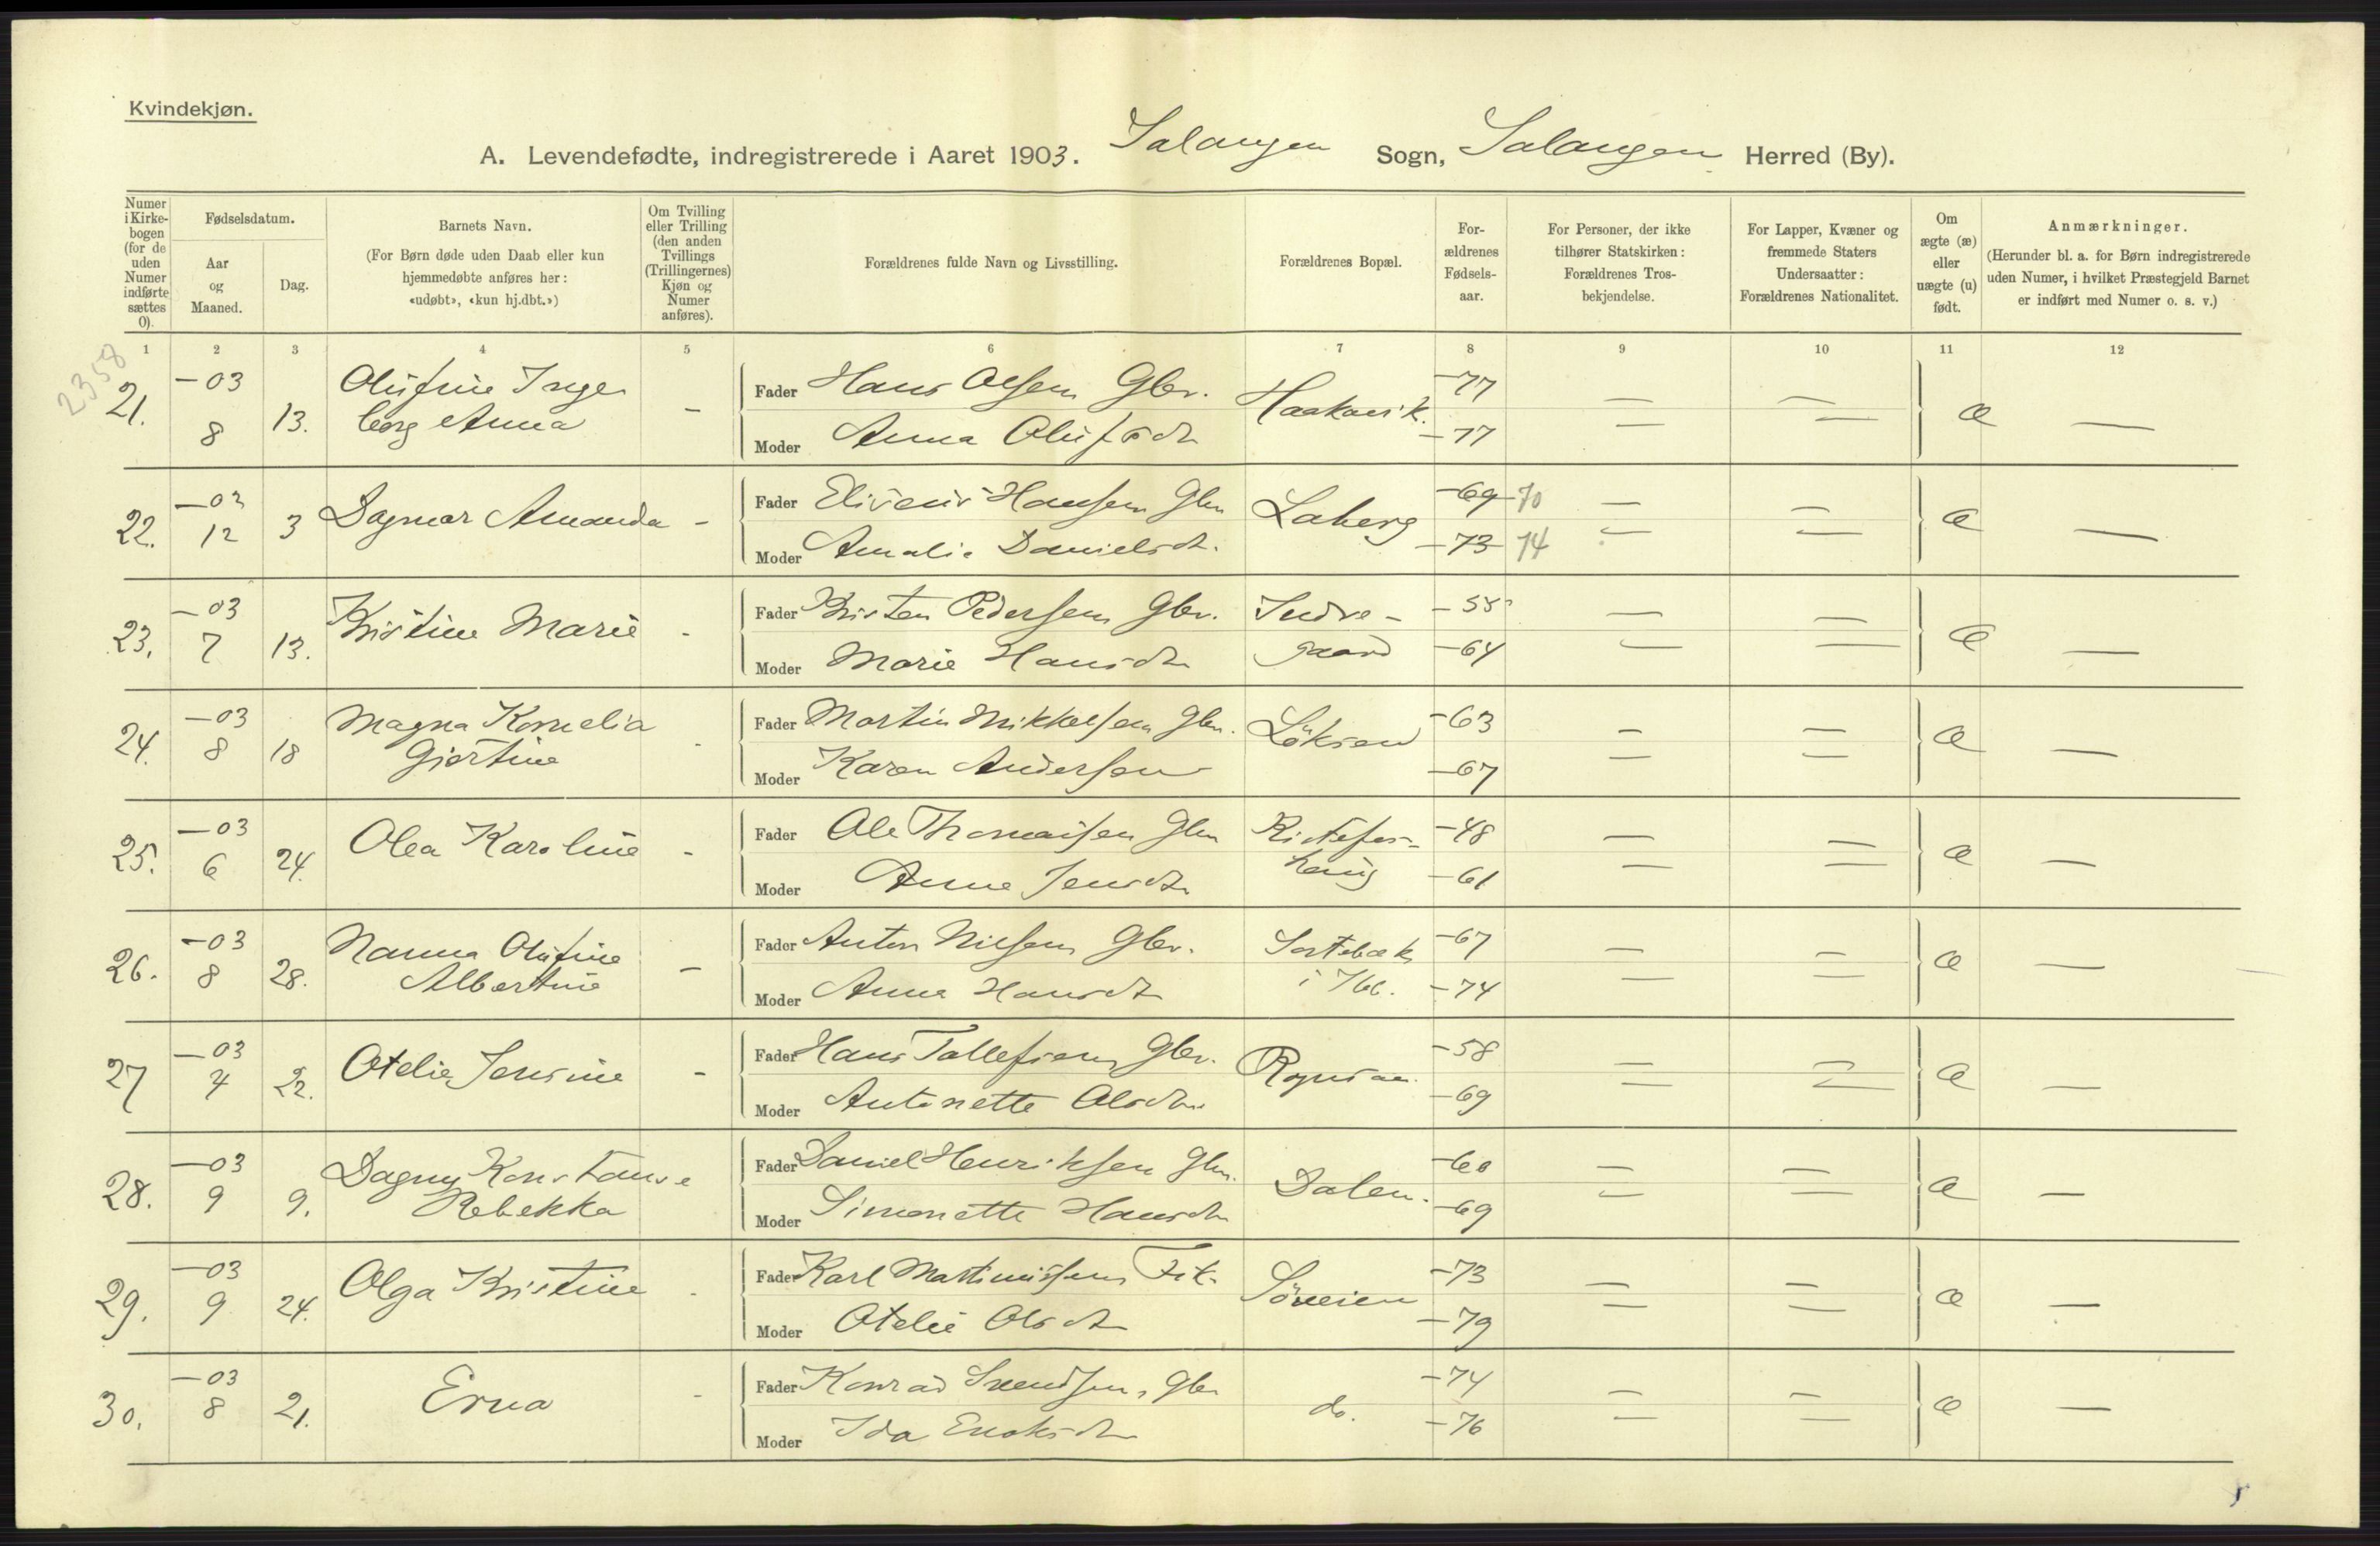 Kvindekjøn.
A. Levendefødte, indregistrerede i Aaret 1903. Salangen Sogn, Salangen Herred (By).
Numer i Kirke-bogen (for de uden Numer indførte sættes 0).
Fødselsdatum.
Aar og Maaned.
Dag.
Barnets Navn.
(For Børn døde uden Daab eller kun
hjemmedøbte anføres her:
«udøbt», «kun hj.dbt.»)
Om Tvilling
eller Trilling
(den anden
Tvillings
(Trillingernes)
Kjøn og
Numer
anføres).
Forældrenes fulde Navn og Livsstilling.
Forældrenes Bopæl.
For-
ældrenes
Fødsels-
aar.
For Personer, der ikke
tilhører Statskirken:
Forældrenes Tros-
bekjendelse.
For Lapper, Kvæner og
fremmede Staters
Undersaatter:
Forældrenes Nationalitet.
Om
ægte (æ)
eller
uægte (u)
født.
Anmærkninger.
(Herunder bl. a. for Børn indregistrerede
uden Numer, i hvilket Præstegjeld Barnet
er indført med Numer o. s. v.)
1 2 3 4 5 6 7 8 9 10 11 12
2358
21. —03 8 13. Olufine Inge
borg Anna –
Fader Hans Olsen Gbr. Haakavik. —77 — — æ —
Moder Anna Olufsdtr —77 — —
22. —03 12 3 Dagmar Amanda –
Fader Eliseus Hansen Gbr Laberg —69 70 — — æ —
Moder Amalie Danielsdtr. —73 74 — —
23. —03 7 13. Kristine Marie -
Fader Kristen Pedersen Gbr. Indre- —55 — — æ —
Moder Marie Hansdtr gaard —64 — —
24. —03 8 18 Magna Kornelia
Gjertine -
Fader Martin Mikkelsen Gbr. —63 — — æ —
Moder Karen Andersen —67 — —
25. —03 6 24. Olea Karoline -
Fader Ole Thomassen Gbr —48 — — æ —
Moder Anne Jensdtr haug —61 — —
26. —03 8 28. Nanna Olufine
Albertine –
Fader Anton Nilsen Gbr. Sortebæk —67 — — æ —
Moder Anna Hansdtr i —74 — —
27 —03 4 22. Otelie Jensine -
Fader Hans Tollefsen Gbr. —58 — — æ —
Moder Antonette Olsdtr. —69 — —
28. —03 9 9. Dagny Konstanse
Rebekka
Fader Daniel Henriksen Gbr. Dalen. —60 — — æ —
Moder Simonette Hansdtr —69 — —
29. —03 9 24. Olga Kristine -
Fader Karl Martinussen Fik. Søveien —73 — — æ —
Moder Otelie Olsdtr —79 — —
30. —03 8 21. Erna -
Fader Konrad Svendsen, Gbr do. —74 — — æ —
Moder Ida Enoksdtr —76 — —